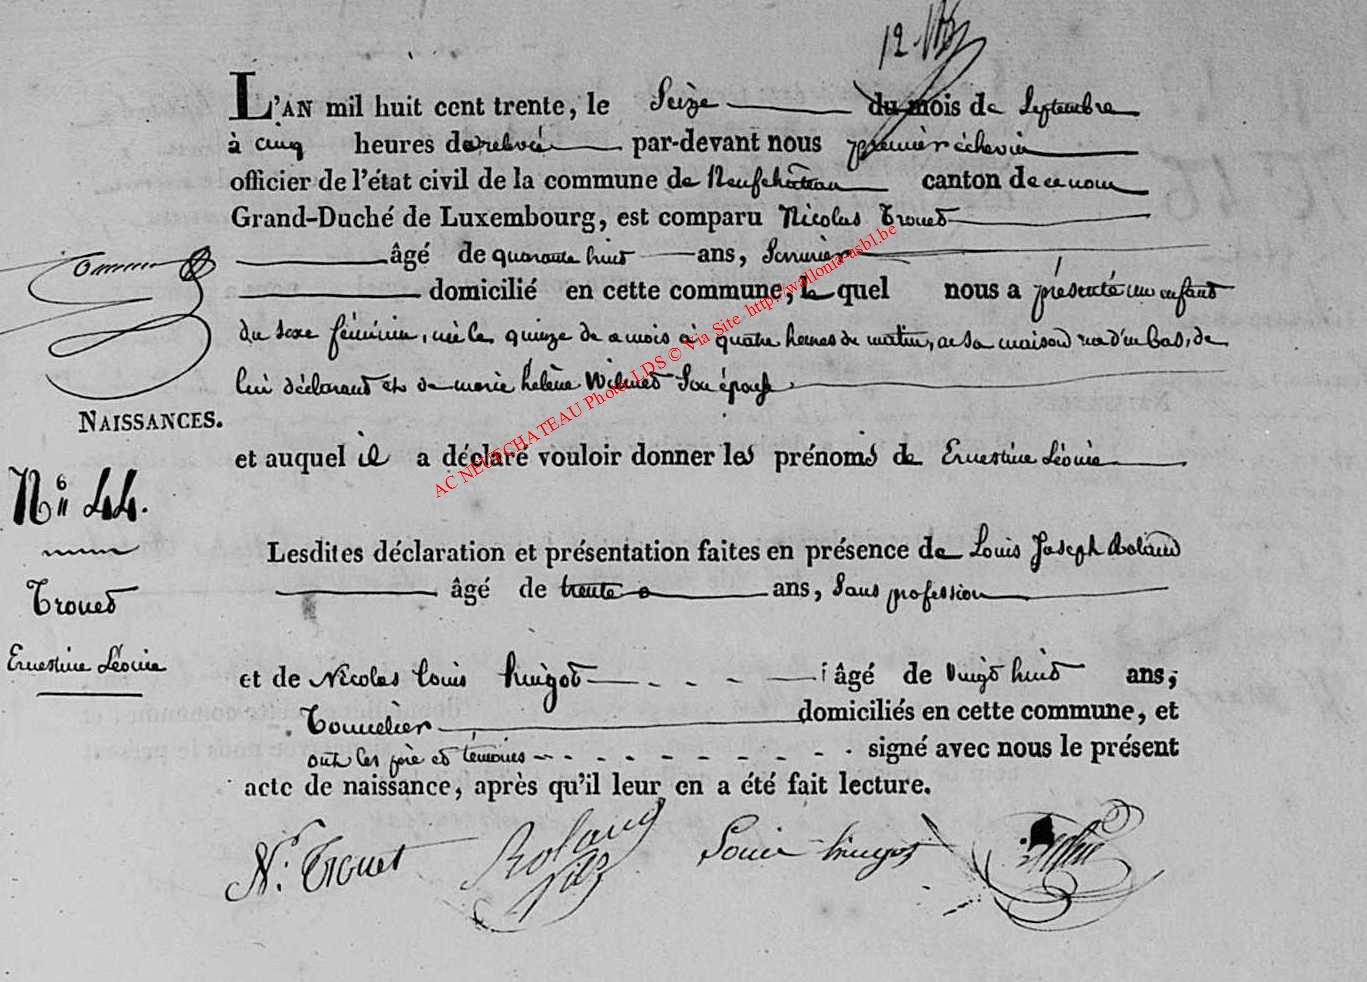 12.
L'AN mil huit cent trente, le Seize du mois de Septembre
à cinq heures de relvée par-devant nous premier échevin
officier de l'état civil de la commune de Neufchâteau canton de ce nom
Grand-Duché de Luxembourg, est comparu Nicolas Trouet
âgé de quarante huit ans, Serrurier
domicilié en cette commune, le quel nous a présenté un enfant
du sexe féminin, née le quinze de ce mois à quatre heures du matin, en sa maison rue d'en bas, de
lui déclarant et de marie helène Wilmet Son épouse
NAISSANCES.
et auquel il a déclaré vouloir donner les prénoms de Ernestine Léonie
N.º 44.
Lesdites déclaration et présentation faites en présence de Louis Joseph Roland
âgé de trente ans, Sans profession
Trouet
Ernestine Léonie
et de Nicolas Louis huigot âgé de vingt huit ans,
Tonnelier domiciliés en cette commune, et
ont les père et témoins signé avec nous le présent
acte de naissance, après qu'il leur en a été fait lecture.
N. Trouet Roland fils Louis huigot
AC NEUFCHATEAU Photo LDS © Via Site http://wallonia-asbl.be